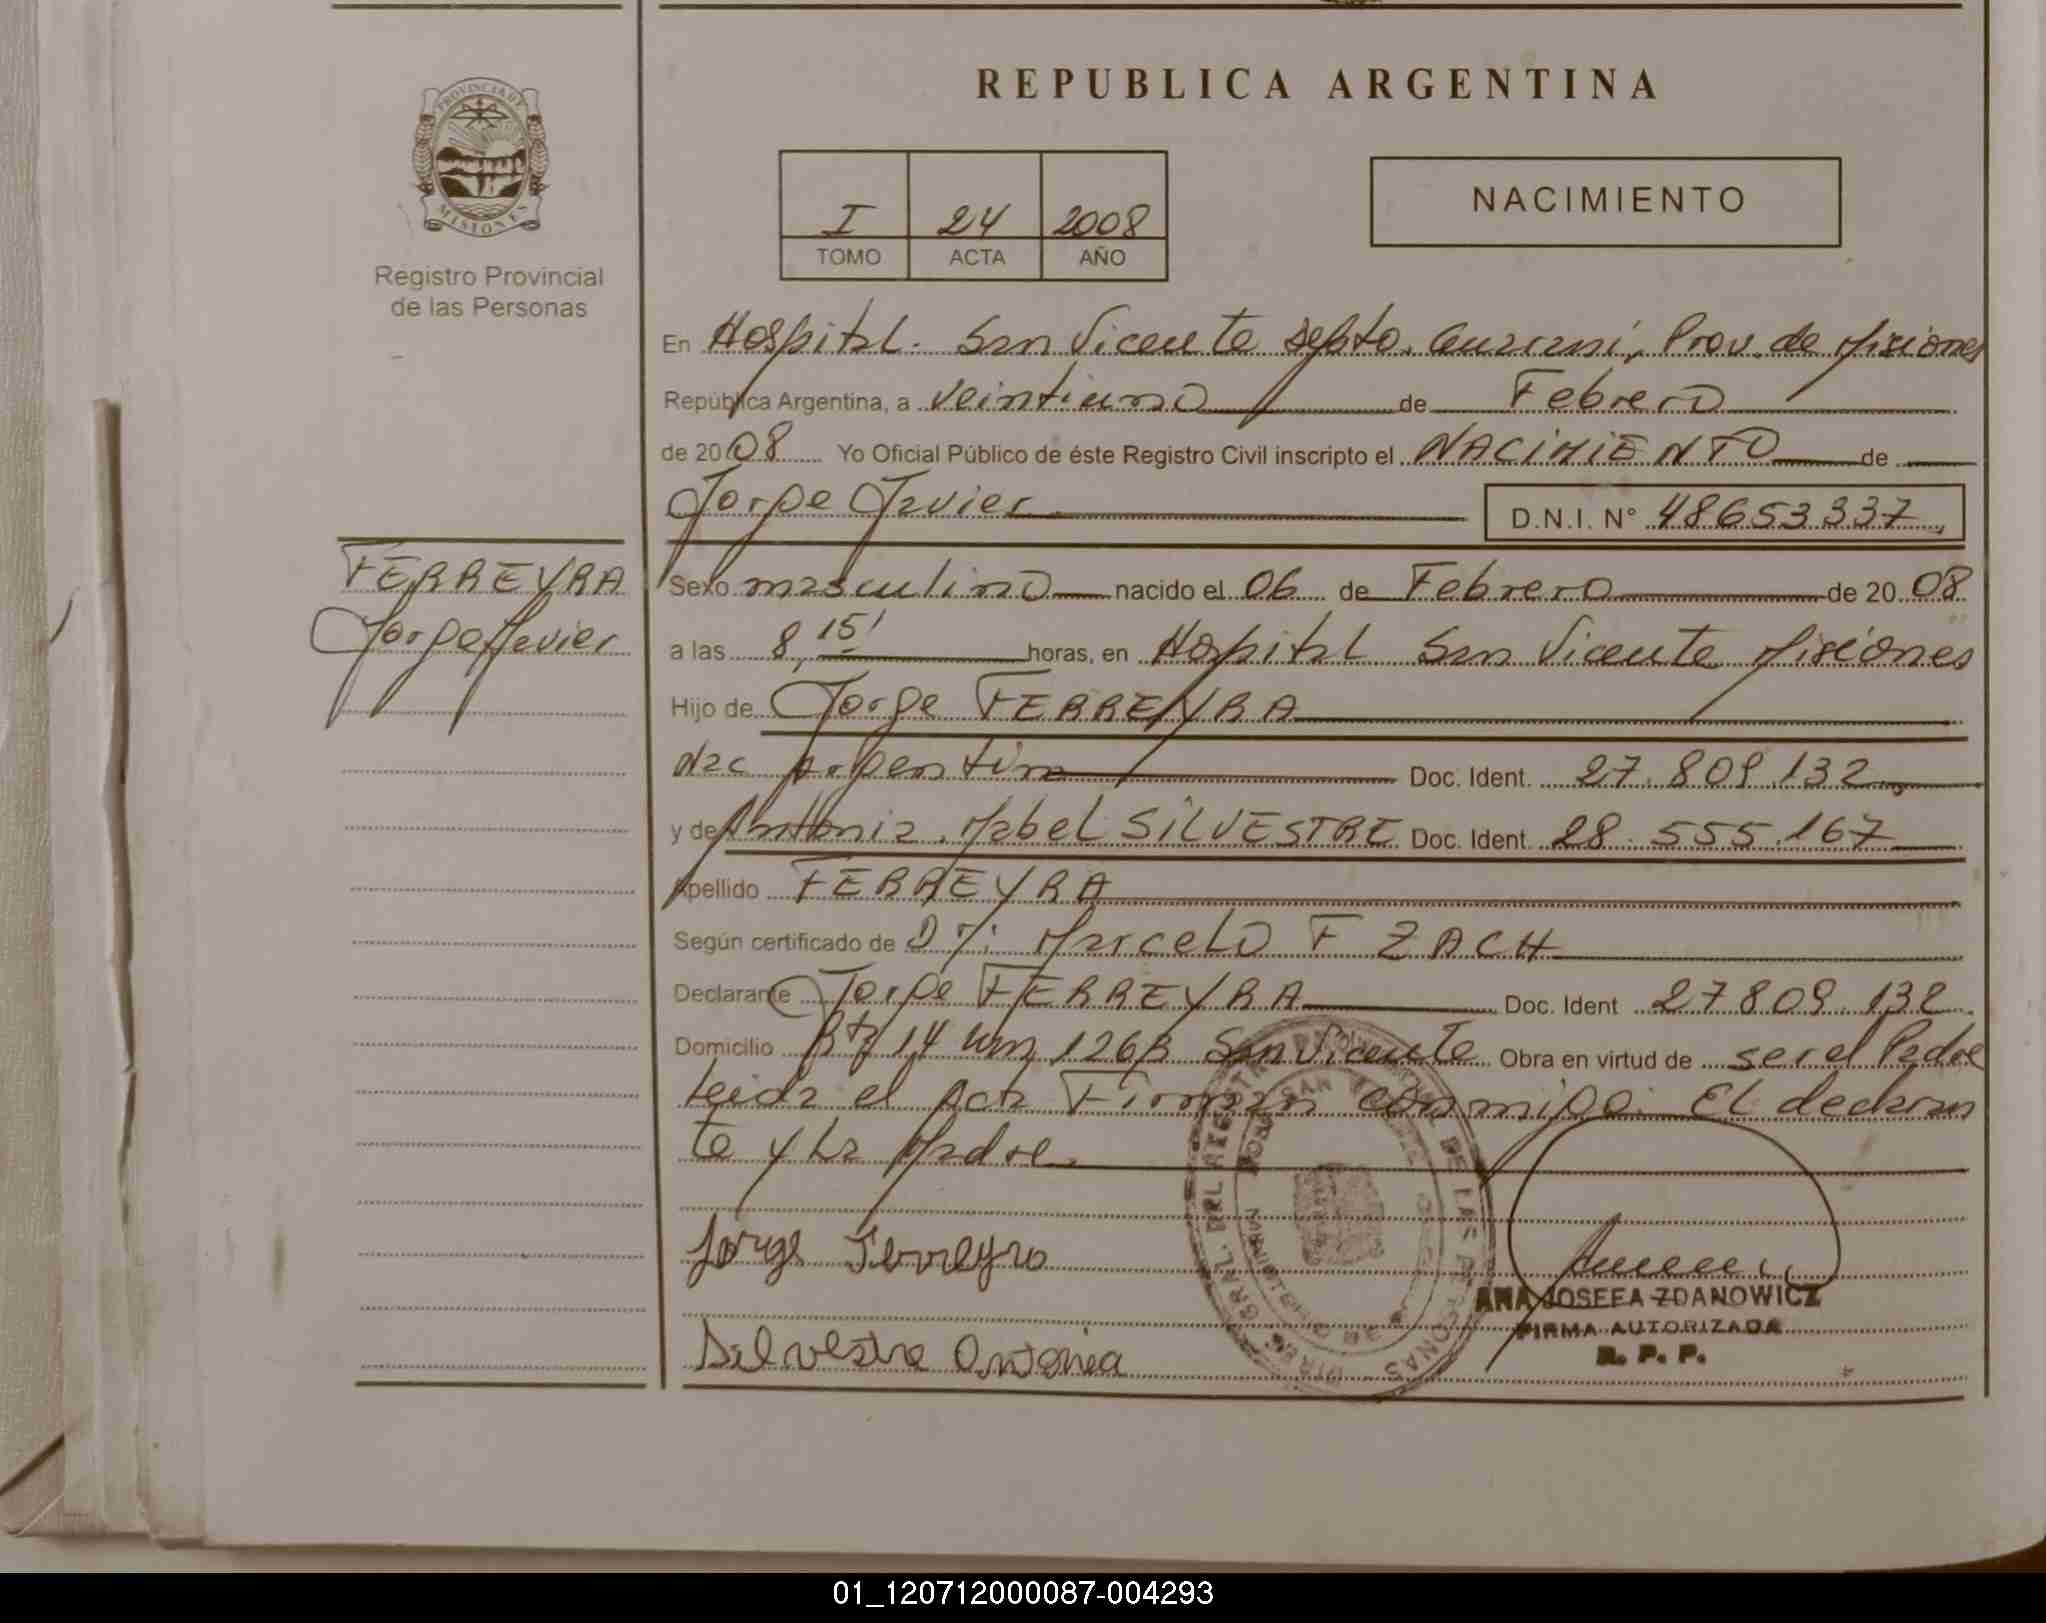 PROVINCIA DE
MISIONES
Registro Provincial
de las Personas
FERREYRA
Jorge Javier
REPUBLICA ARGENTINA
I 24 2008
TOMO ACTA AÑO
NACIMIENTO
En Hospital. San Vicente Depto. Guarani, Prov. de Misiones
República Argentina, a veintiuno de Febrero
de 2008 Yo Oficial Público de éste Registro Civil inscripto el NACIMIENTO de
Jorge Javier D.N.I. N° 48653337
Sexo masculino nacido el 06 de Febrero de 2008
a las 8,15' horas, en Hospital San Vicente Misiones
Hijo de Jorge FERREYRA
Nac Argentina Doc. Ident. 27.809.132
y de Antonia Mabel SILVESTRE Doc. Ident. 28.555.167
Apellido FERREYRA
Según certificado de Marcelo F ZACH
Declarante Jorge FERREYRA Doc. Ident 27809.132
Domicilio Rta 14 km 1263 San Vicente Obra en virtud de ser el Padre
Leida el Acta Firman conmigo. El declaran
te y La Madre.
Jorge Ferreyra
Silvestre Antonia
ANA JOSEFA ZDANOWICZ
FIRMA AUTORIZADA
R. P. P.
01_120712000087-004293